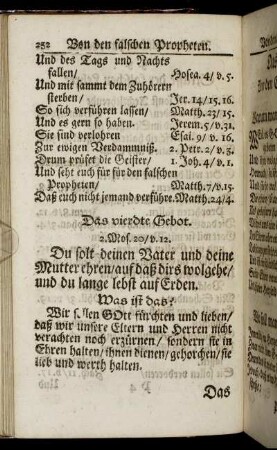 252 Von den falschen Propheten.
Und des Tags und Nachts
fallen/ Hosea. 4/ v. 5.
Und mit sammt dem Zuhörern
sterben/ Jer. 14/15, 16.
So sich verführen lassen/ Matth. 23/15.
Und es gern so haben. Jerem. 5/v.31.
Sie sind verlohren Esai. 9/ v. 16.
Zur ewigen Verdammniß. 2. Petr. 2/ v. 3.
Drum prüfet die Geister/ 1. Joh. 4/ v. 1.
Und seht euch für für den falschen
Propheten/ Matth. 7/v.15.
Daß euch nicht jemand verführe. Matth. 24/4.
Das vierdte Gebot.
2. Mos. 20/ v. 12.
Du solt deinen Vater und deine
Mutter ehren/ auf daß dirs wolgehe/
und du lange lebst auf Erden.
Was ist das?
Wir sollen GOtt fürchten und lieben/
daß wir unsere Eltern und Herren nicht
verachten noch erzürnen/ sondern sie in
Ehren halten/ ihnen dienen/ gehorchen/ sie
lieb und werth halten.
Das